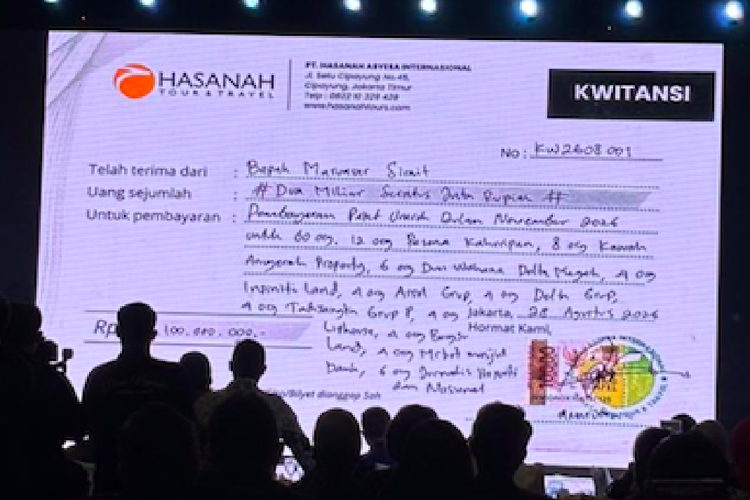 HASANAH
TOUR & TRAVEL
PT. HASANAH ABYERA INTERNASIONAL
Jl. Setu Cipayung No.45,
Cipayung, Jakarta Timur
www.hasanahtours.com
KWITANSI
No : KW2608 001
Telah terima dari : Bapak Maruarar Sirait
Uang sejumlah : # Dua Miliar Seratus Juta Rupiah #
Untuk pembayaran : Pembayaran Paket Umroh Bulan November 2026
untuk 60 org, 12 org Pesona Kahuripan, 8 org Kawah
Anugerah Property, 6 org Dua Wahana Delta Megah, 4 org
Infiniti Land, 4 org Arsel Grup, 4 org Delta Grup,
4 org Grup P, 4 org
Jakarta, 28 Agustus 2026
Rp 100.000.000.-
Hormat Kami,
4 org
Land, 4 org
6 org Jurnalis
dan Nasional
/Bilyet dianggap Sah